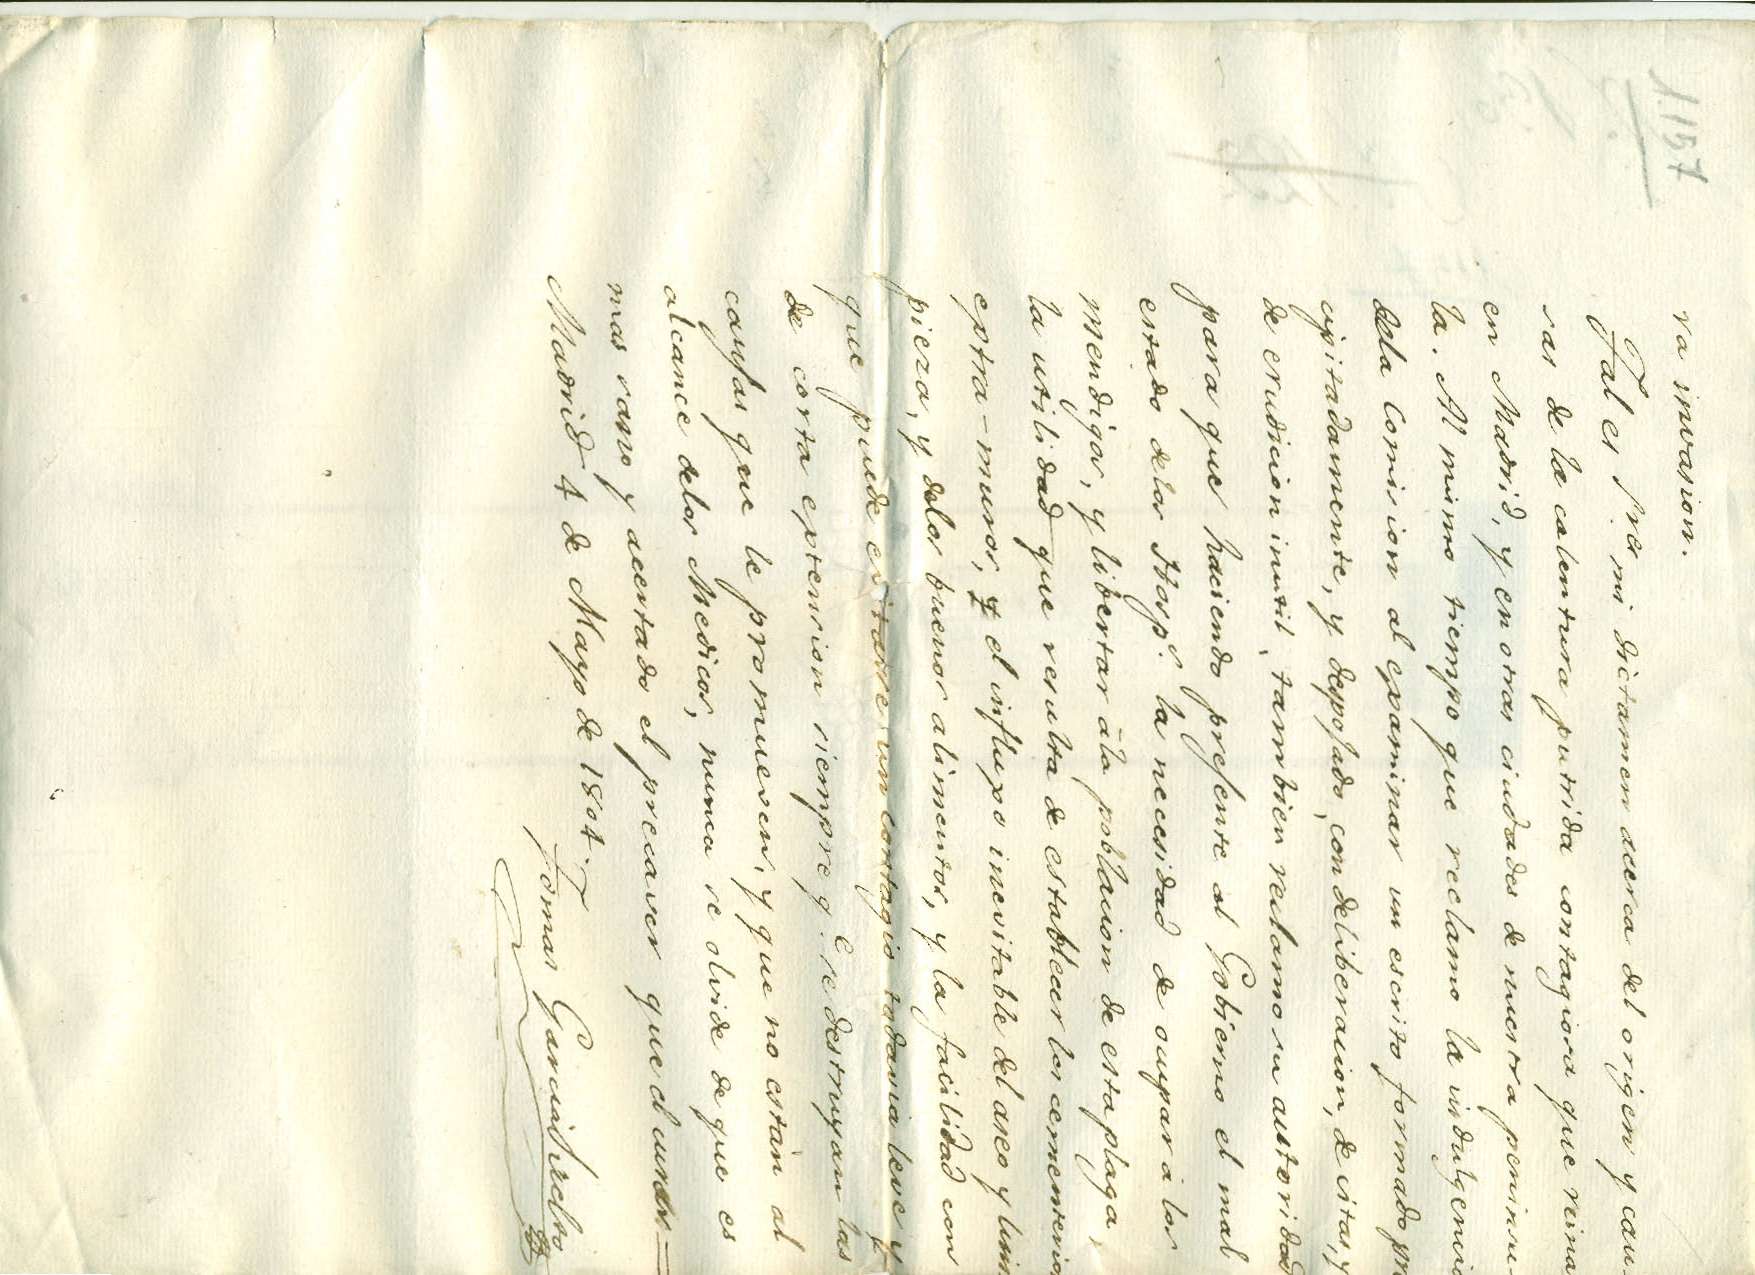 1.1157
va invasion.
Tal es Sres mi dictamen acerca del origen y cau-
sas de la calentura putrida contagiosa que reina
en Madrid, y en otras ciudades de nuestra peninsu-
la. Al mismo tiempo que reclamo la indulgencia
dela Comision al examinar un escrito formado pre
cipitadamente, y despojado, con deliberacion, de citas, y
de erudicion inutil, tambien reclamo su autoridad
para que haciendo presente al Gobierno el mal
estado delos Hosp.s la necesidad de ocupar a los
mendigos, y libertar ála poblacion de esta plaga,
la utilidad que resulta de establecer los cementerios
extra-muros, y el influxo inevitable del aseo y lim
pieza, y delos buenos alimentos, y la facilidad con
que puede evitarse un contagio todavia leve y
de corta extension siempre q.e se destruyan las
causas que le promueven, y que no están al
alcance delos Medicos, nunca se olvide de que es
mas sano y acertado el precaver que el curar.
Madrid 4 de Mayo de 1804.
Tomas Garcia Suelto